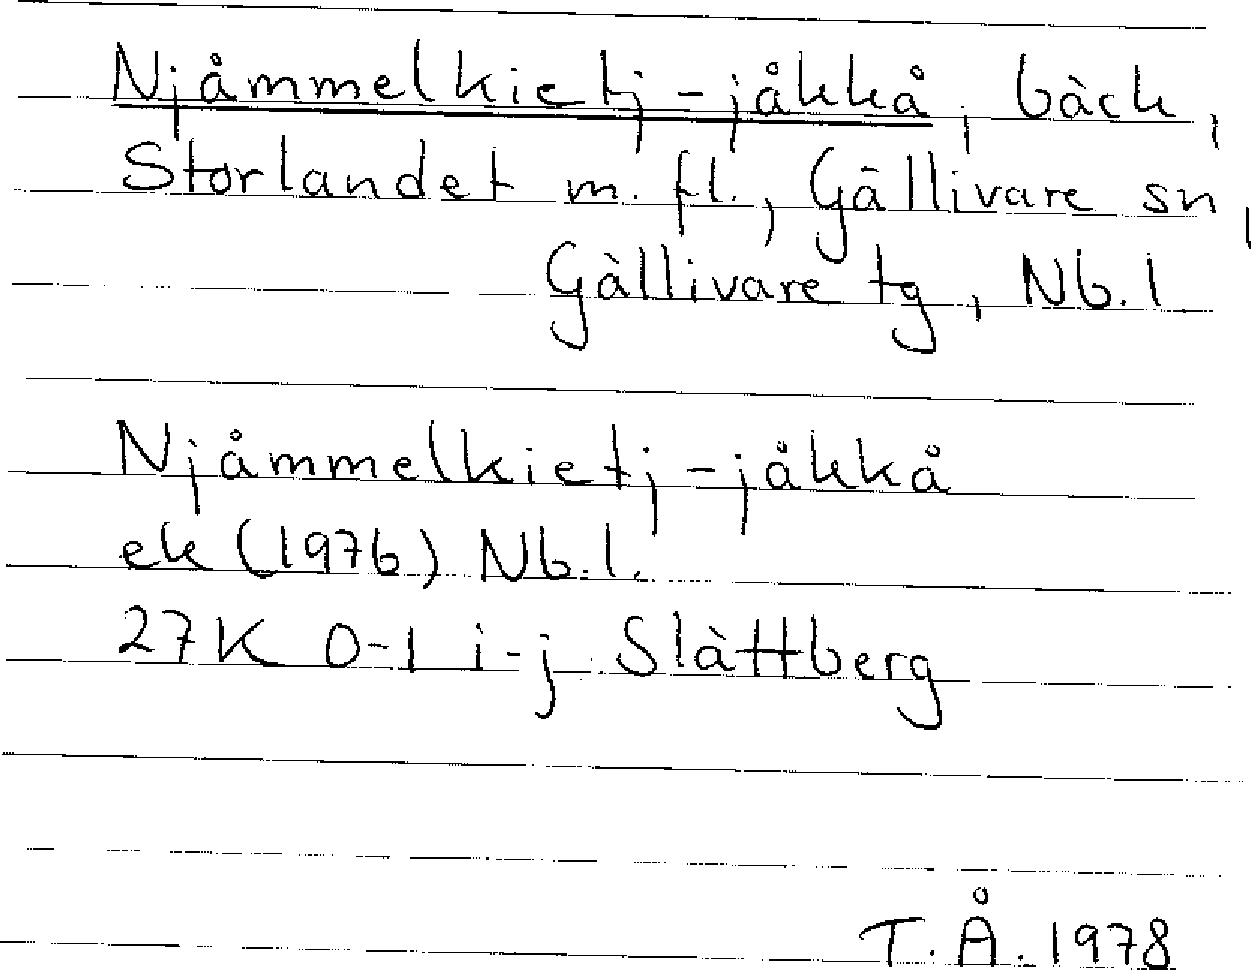 Njåmmelkietj-jåkkå, bäck,
Storlandet m. fl., Gällivare sn,
Gällivare tg, Nb. l
Njåmmelkietj-jåkkå
ek (1976) Nb. l.
27K 0-1 i-j Slättberg
T. Å. 1978